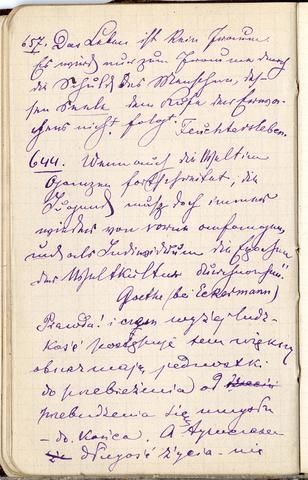 657. Das Leben ist kein Traum.
Es wird nur zum Traume durch
die Schuld des Menschen, des-
sen Seele dem Rufe des Erwa-
chens nicht folgt. Feuchtersleben.
644. Wenn auch die Welt im
Ganzen fortschreitet, die
Jugend muß doch immer
wieder von vorne anfangen
und als Individuum die Epochen
der Weltkultur durchmachen".
Goethe (bei Eckermann)
Prawda! i czem wyżej ludz-
kość postępuje tem większy
obszar mają jednostki
do przebieżenia od
przebudzenia się umysłu
- do końca. A tymczasem
długość życia - nie